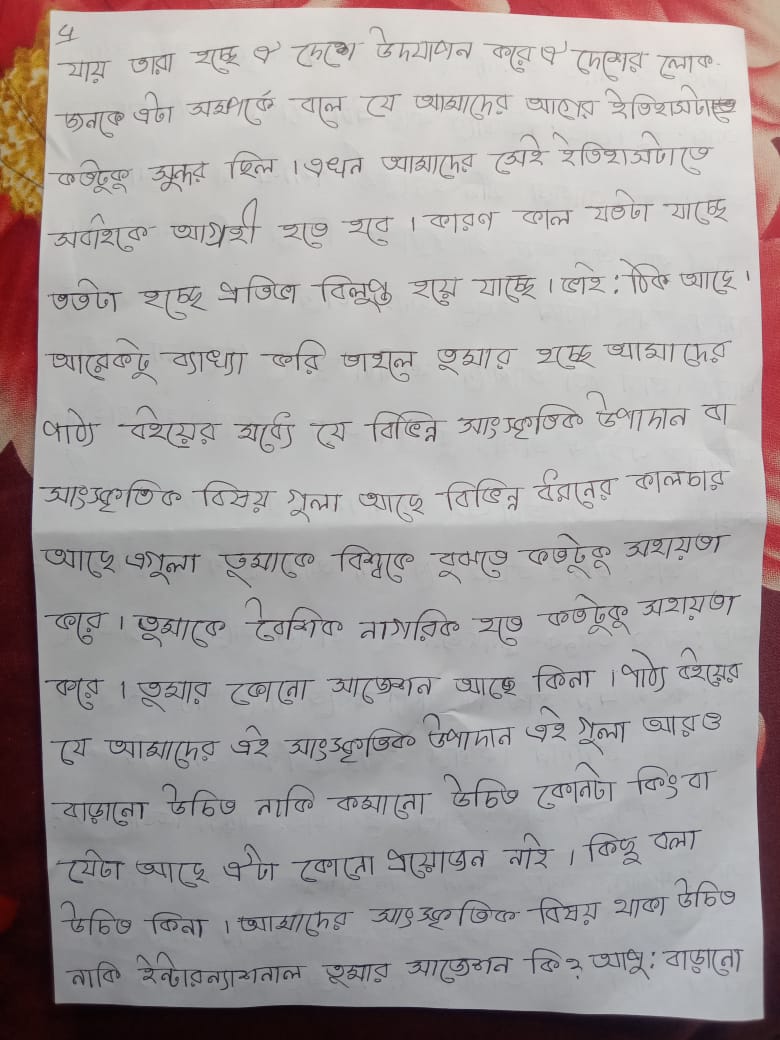 ৫
যায় তারা হচ্ছে ঐ দেশে উদযাপন করে ঐ দেশের লোক
জনকে এটা সম্পর্কে বলে যে আমাদের আগের ইতিহাসটা
কতটুকু সুন্দর ছিল। এখন আমাদের সেই ইতিহাসটাতে
সবাইকে আগ্রহী হতে হবে। কারণ কাল যতটা যাচ্ছে
ততটা হচ্ছে প্রতিভা বিলুপ্ত হয়ে যাচ্ছে। ভাই: ঠিক আছে।
আরেকটু ব্যাখ্যা করি তাহলে তুমার হচ্ছে আমাদের
পাঠ্য বইয়ের মধ্যে যে বিভিন্ন সাংস্কৃতিক উপাদান বা
সাংস্কৃতিক বিষয় গুলা আছে বিভিন্ন ধরনের কালচার
আছে এগুলা তুমাকে বিশ্বকে বুঝতে কতটুকু সহায়তা
করে। তুমাকে বৈশিক নাগরিক হতে কতটুকু সহায়তা
করে। তুমার কোনো সাজেশন আছে কিনা। পাঠ্য বইয়ের
যে আমাদের এই সাংস্কৃতিক উপাদান এই গুলা আরও
বাড়ানো উচিত নাকি কমানো উচিত কোনটা কিংবা
যেটা আছে ঐটা কোনো প্রয়োজন নাই। কিছু বলা
উচিত কিনা। আমাদের সাংস্কৃতিক বিষয় থাকা উচিত
নাকি ইন্টারন্যাশনাল তুমার সাজেশন কি? আপু: বাড়ানো